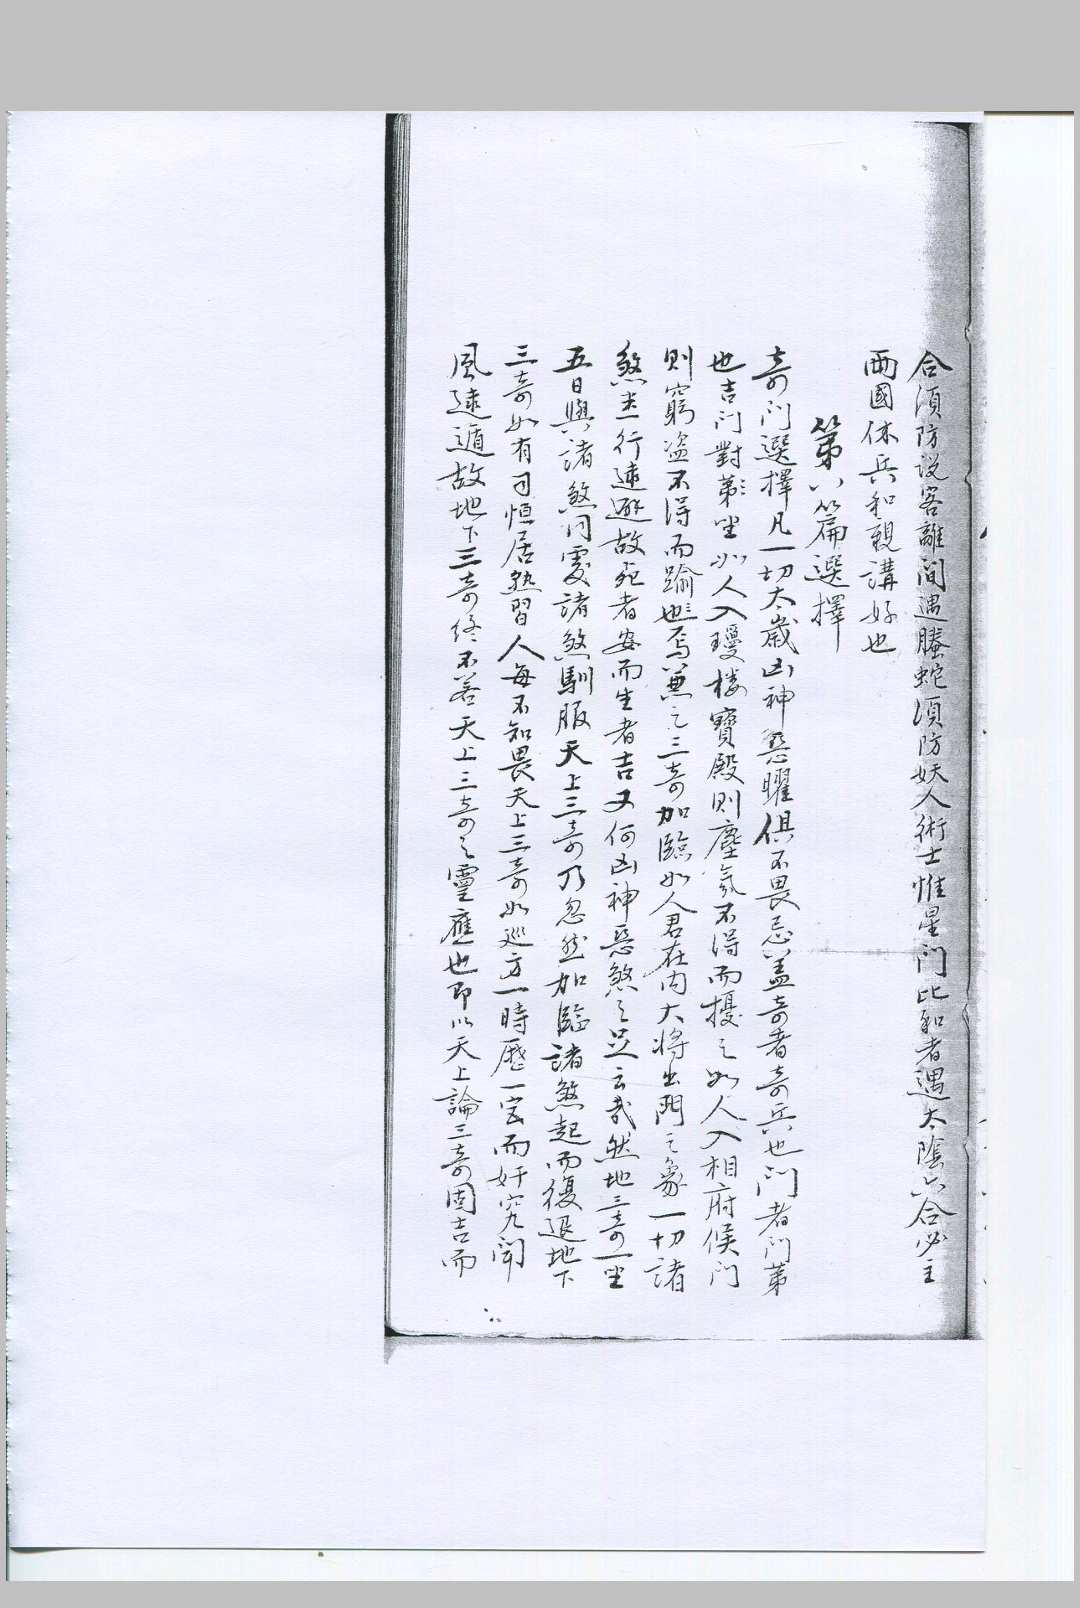 合須防說客離間遇螣蛇須防妖人術士惟星門比和者遇太陰六合必主
兩國休兵和親講好也
第八篇選擇
奇門選擇凡一切太歲凶神惡曜俱不畏忌蓋奇者奇兵也門者門第
也吉門對第坐如人入瓊樓寶殿則塵氛不得而擾之如人入相府侯門
則竊盗不得而踰也焉兼之三奇加臨如人君在內大將出門之象一切諸
煞坐行速避故死者安而生者吉又何凶神惡煞之足云哉然地三奇一坐
五日與諸煞同處諸煞馴服天上三奇乃忽然加臨諸煞起而復退地下
三奇如有司恒居熟習人每不知畏天上三奇如巡方一時歷一宮而奸宄聞
風遠遁故地下三奇終不若天上三奇之靈應也即以天上論三奇固吉而